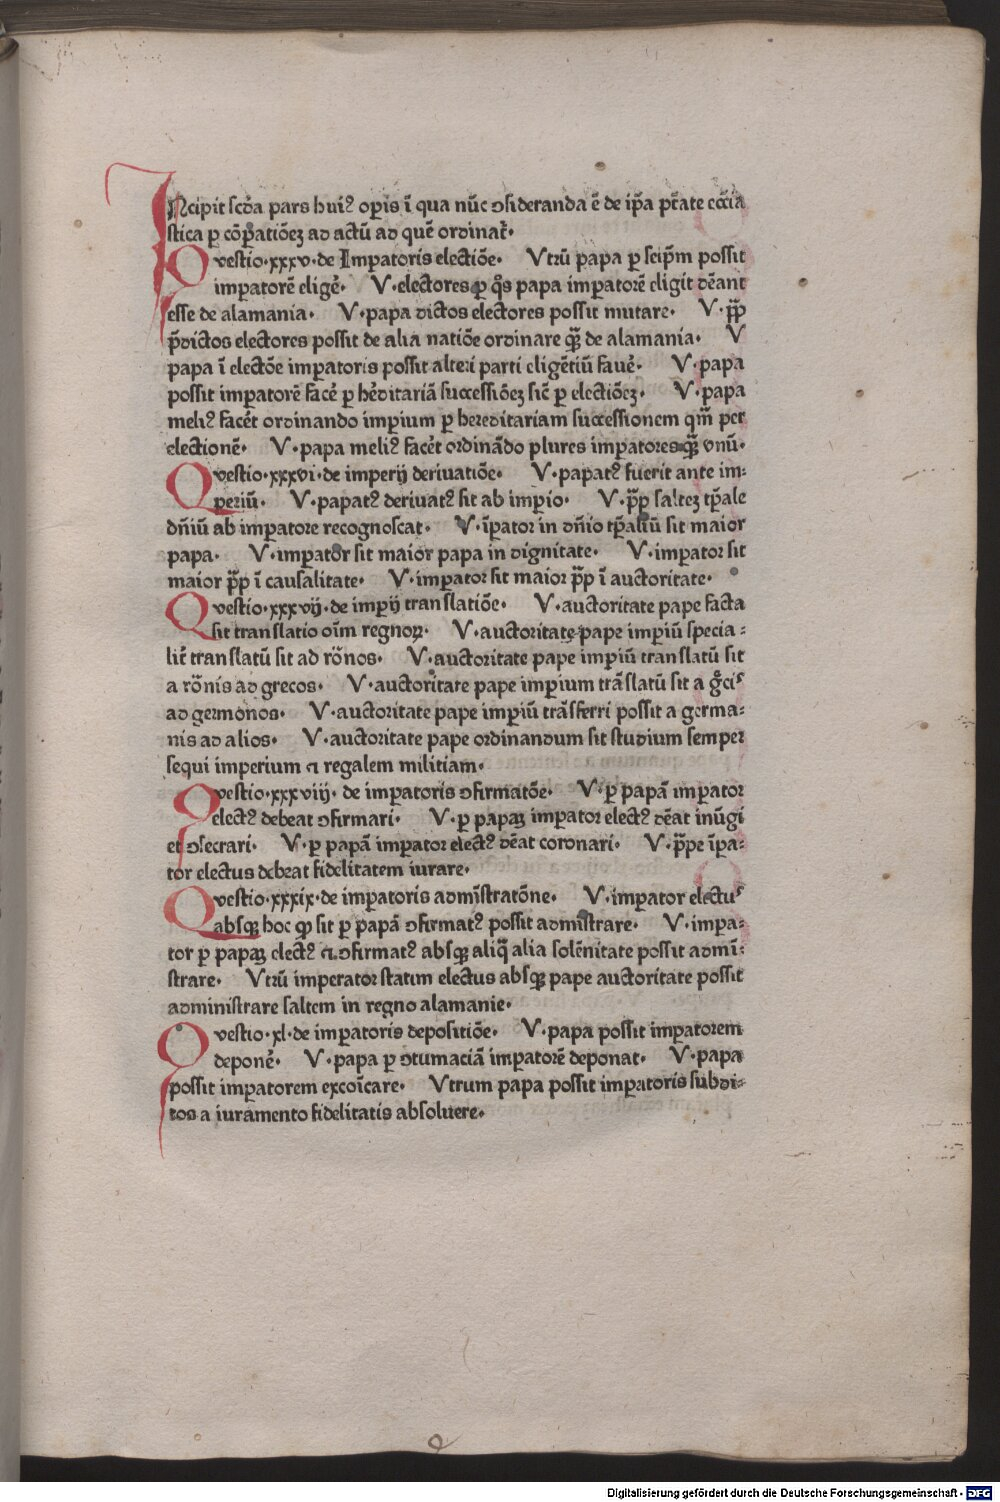 INcipit scd̄a pars huiꝰ oꝑis ī qua nūc ↄsideranda ē de ip̄a pt̄ate eccīa
stica ꝑ cōꝑatiōeꝫ ad actū ad quē ordinat̄.
Qvestio.xxxv.de Imꝑatoris electiōe. Vtrū papa ꝑ seip̄m possit
imꝑatorē eligē. V.electores ꝑ qͦs papa imꝑatorē eligit dēant
esse de alamania. V.papa dictos electores possit mutare. V.pp̄
p̄dictos electores possit de alia natiōe ordinare qͣꝫ de alamania. V
papa ī electōe imꝑatoris possit alteri parti eligētiū fauē. V.papa
possit imꝑatorē facē ꝑ hēditariā successiōeꝫ sic̄ ꝑ electiōeꝫ. V.papa
meliꝰ facēt ordinando imꝑium ꝑ hereditariam successionem qm̄ per
electionē. V.papa meliꝰ facēt ordinādo plures imꝑatores qͣꝫ vnū.
Qvestio.xxxvi.de imperij deriuatiōe. V.papatꝰ fuerit ante im-
ꝑeriū. V.papatꝰ deriuatꝰ sit ab imꝑio. V.pp̄ salteꝫ tp̄ale
dn̄iū ab imꝑatore recognoscat. V.īꝑator in dn̄io tp̄aliū sit maior
papa. V.imꝑator sit maior papa in dignitate. V.imꝑator sit
maior pp̄ ī causalitate. V.imꝑator sit maior pp̄ ī auctoritate.
Qvestio.xxxvij.de imꝑij translatiōe. V.auctoritate pape facta
sit translatio oīm regnoꝝ. V.auctoritate pape imꝑiū specia-
lit̄ translatū sit ad rōnos. V.auctoritate pape imꝑiū translatū sit
a rōnis ad grecos. V.auctoritate pape imꝑium trāslatū sit a gͤcis
ad germonos. V.auctoritate pape imꝑiū trāsferri possit a germa-
nis ad alios. V.auctoritate pape ordinandum sit studium semper
sequi imperium ⁊ regalem militiam.
Qvestio.xxxviij. de imꝑatoris ↄfirmatōe. V.ꝑ papā imꝑator
electꝰ debeat ↄfirmari. V.ꝑ papaꝫ imꝑator electꝰ dēat inūgi
et ↄsecrari. V.ꝑ papā imꝑator electꝰ dēat coronari. V.pp̄e īꝑa-
tor electus debeat fidelitatem iurare.
Qvestio.xxxix.de imꝑatoris admīstratōne. V.imꝑator electus
absqꝫ hoc qp̄ sit ꝑ papā ↄfirmatꝰ possit admīstrare. V.imꝑa-
tor ꝑ papaꝫ electꝰ ⁊.ↄfirmatꝰ absqꝫ aliqͣ alia solēnitate possit admī-
strare. Vtrū imperator statim electus absqꝫ pape auctoritate possit
administrare saltem in regno alamanie.
Qvestio.xl.de imꝑatoris depositiōe. V.papa possit imꝑatorem
deponē. V.papa ꝑ ↄtumaciā imꝑatorē deponat. V.papa
possit imꝑatorem excoīcare. Vtrum papa possit imꝑatoris subdi-
tos a iuramento fidelitatis absoluere.
Digitalisierung gefördert durch die Deutsche Forschungsgemeinschaft - DFG